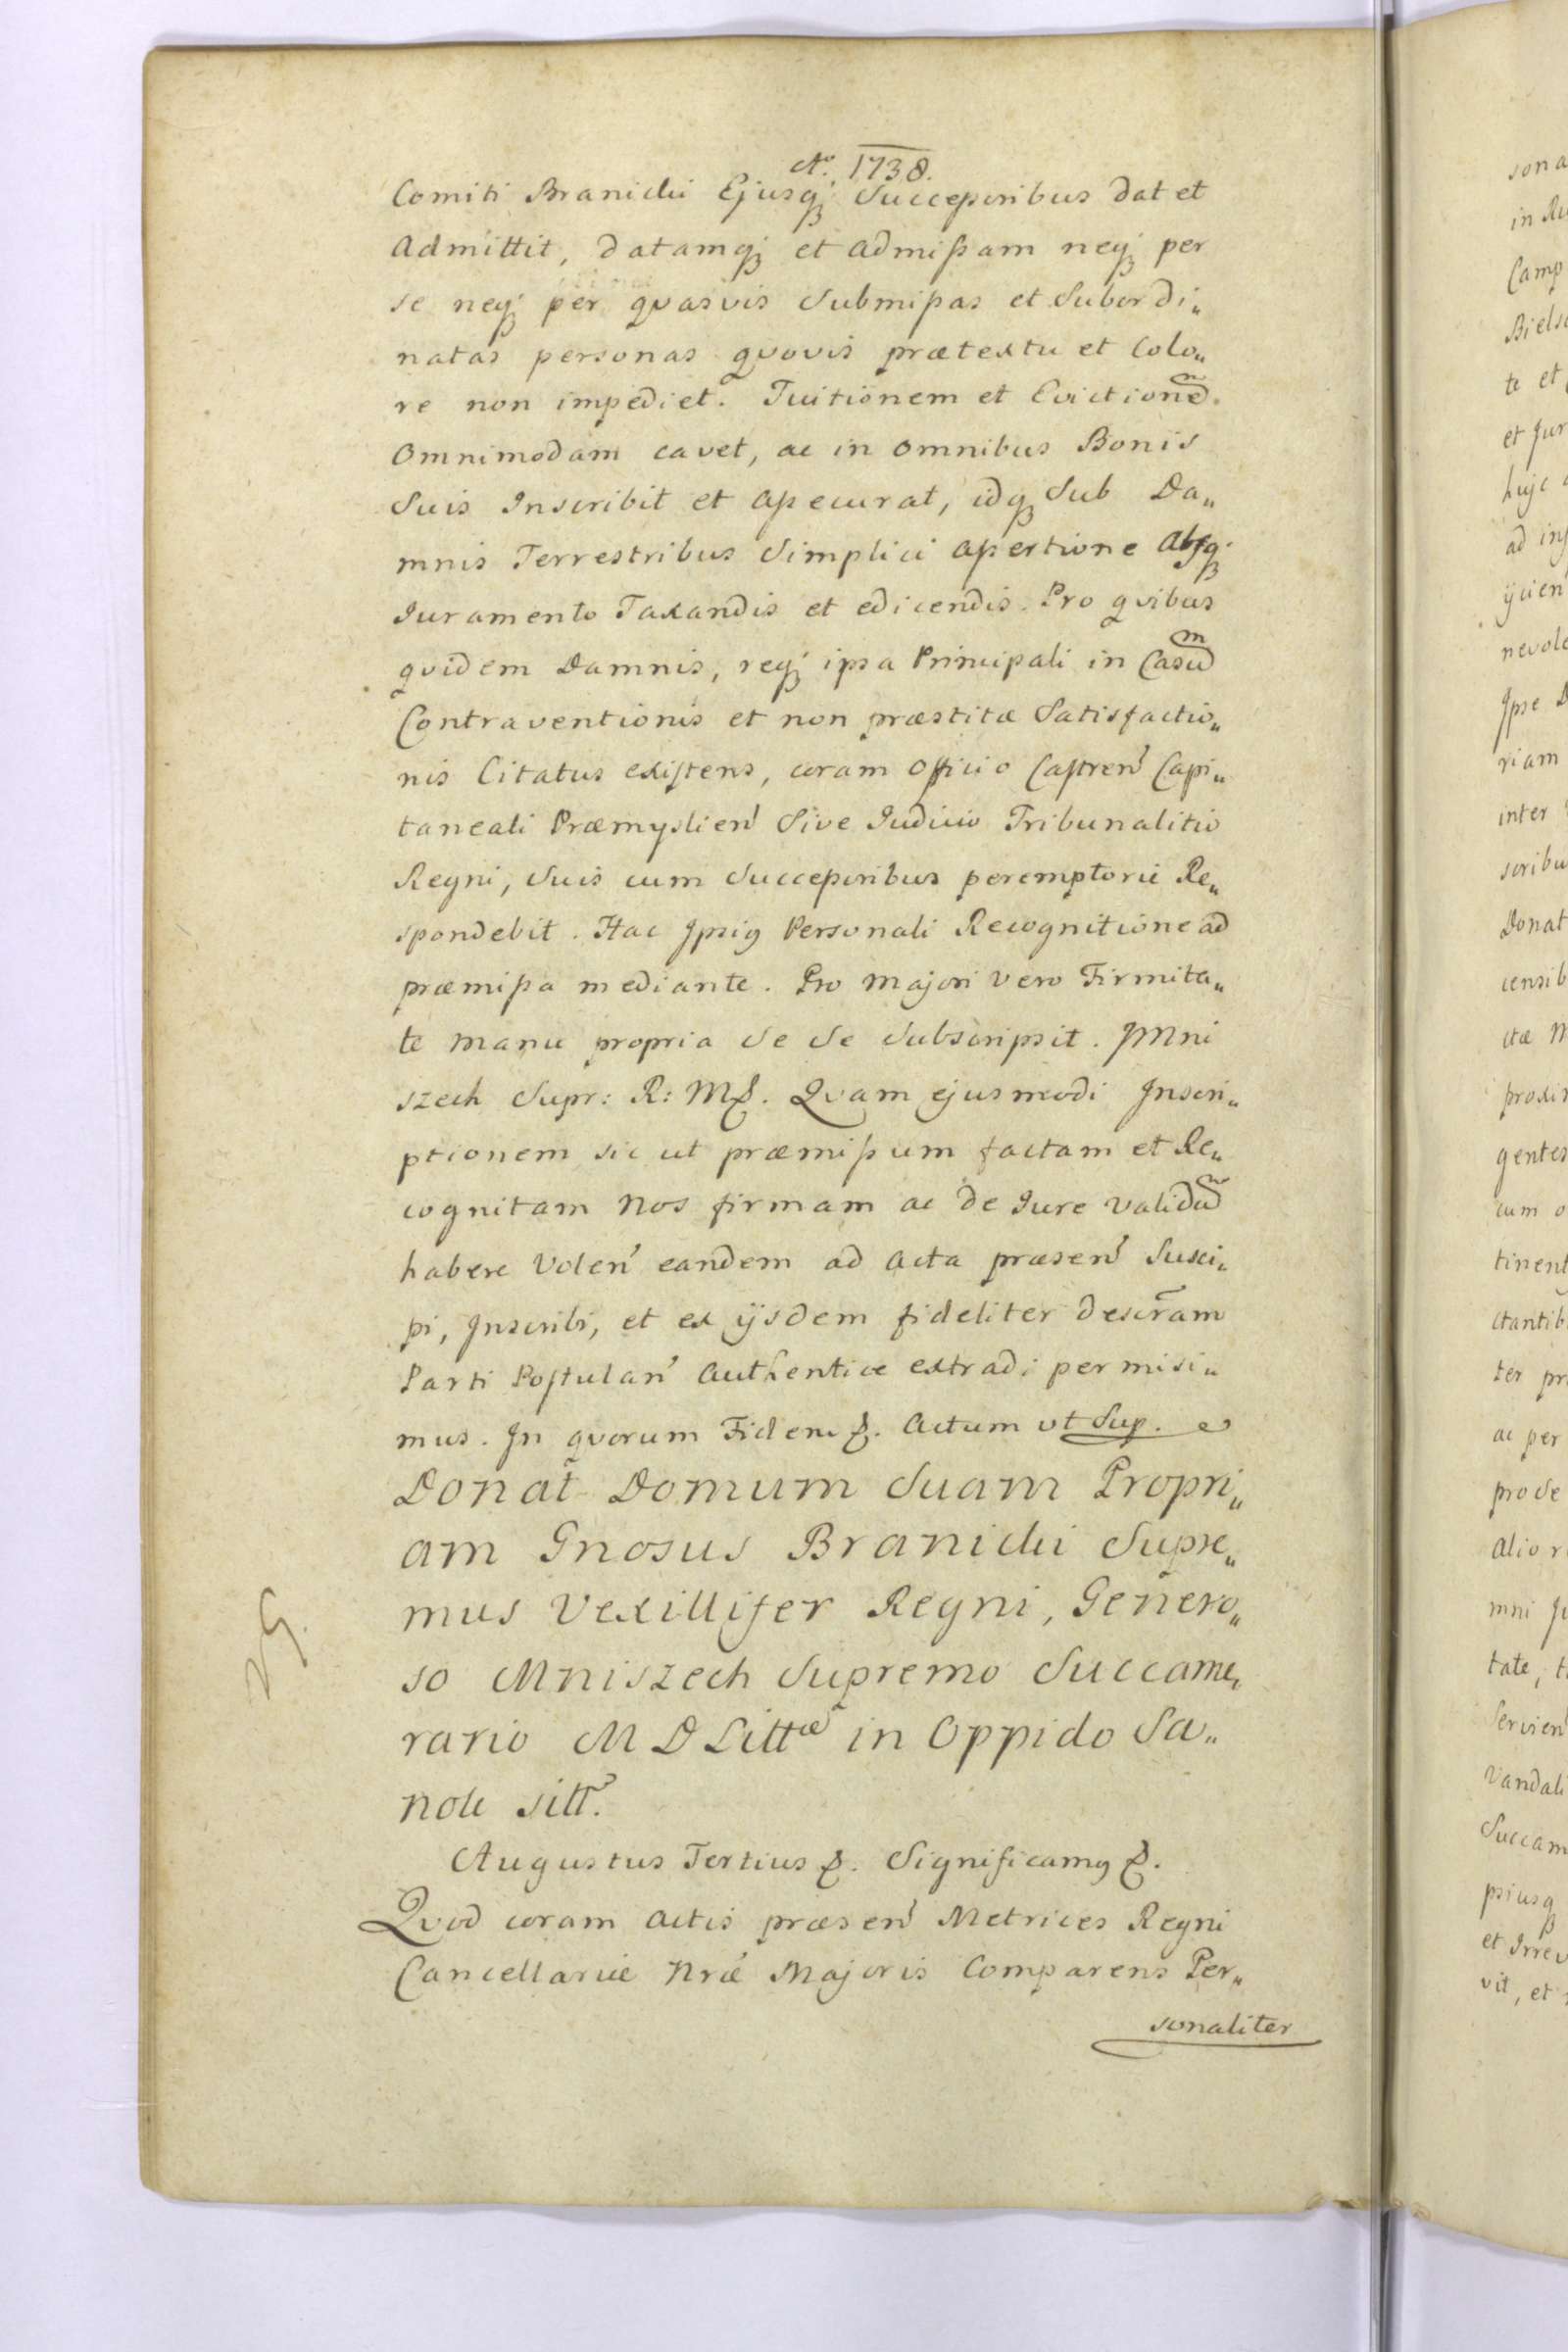 Ao. 1738.
Comiti Branicki Ejusq; Successoribus dat et
Admittit, datamq; et admissam neq; per
se neq; per quasvis submissas et subordi„
natas personas quovis prætextu et colo„
re non impediet. Tuitionem et Evictionem
Omnimodam cavet, ac in omnibus Bonis
Suis Inscribit et assecurat, idq; sub Da„
mnis Terrestribus simplici assertione absq;
Juramento Taxandis et edicendis. Pro quibus
quidem Damnis, req; ipsa Principali in Casum
Contraventionis et non præstitæ Satisfactio„
nis Citatus existens, coram Officio Castren̄ Capi„
taneali Præmyslien̄ Sive Judicio Tribunalitio
Regni, Suis cum Successoribus peremptorie Re„
spondebit. Hac Ipsig Personali Recognitione ad
præmissa mediante. Pro majori vero Firmita„
te manu propria se se subscripsit. JMni
szech Supr: R: M&. Quam ejusmodi Inscri„
ptionem sic ut præmissum factam et Re„
cognitam Nos firmam ac de Jure validam
habere Volen̄ eandem ad acta præsen̄ Susci„
pi, Inscribi, et ex ijsdem fideliter descr̄am
Parti Postulan̄ authentice extradi permisi„
mus. In quorum Fidem &. Actum ut Sup.
Donat Domum suam Propri„
am Gnosus Branicki Supre„
mus Vexillifer Regni, Genero„
so Mniszech Supremo Succame„
rario M D Littæ in Oppido Sa„
nok sitt.
29.
Augustus Tertius &. Significamg &.
Quod coram actis præsen̄ Metrices Regni
Cancellariæ Nræ Majoris Comparens Per„
sonaliter
sona
Camp
te et
ad in
riam
inter
Donat
gentes
tinent
ac per
pro se
tate, t
Servien̄
Vandali
Succam
psiusq
vit, et